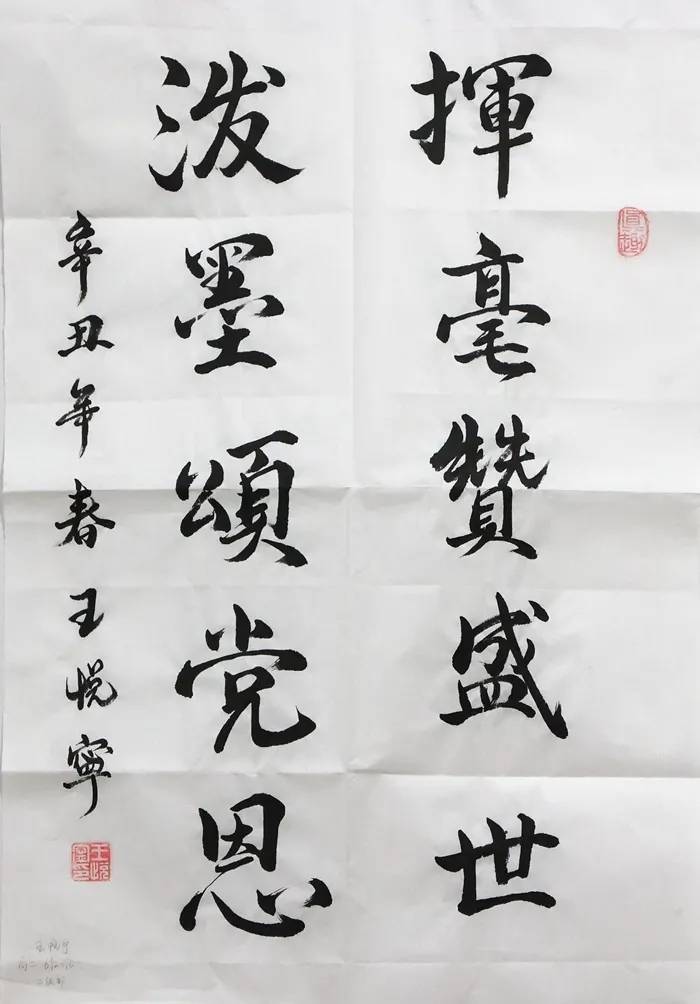 揮毫贊盛世
泼墨頌党恩
辛丑年春王悦寧